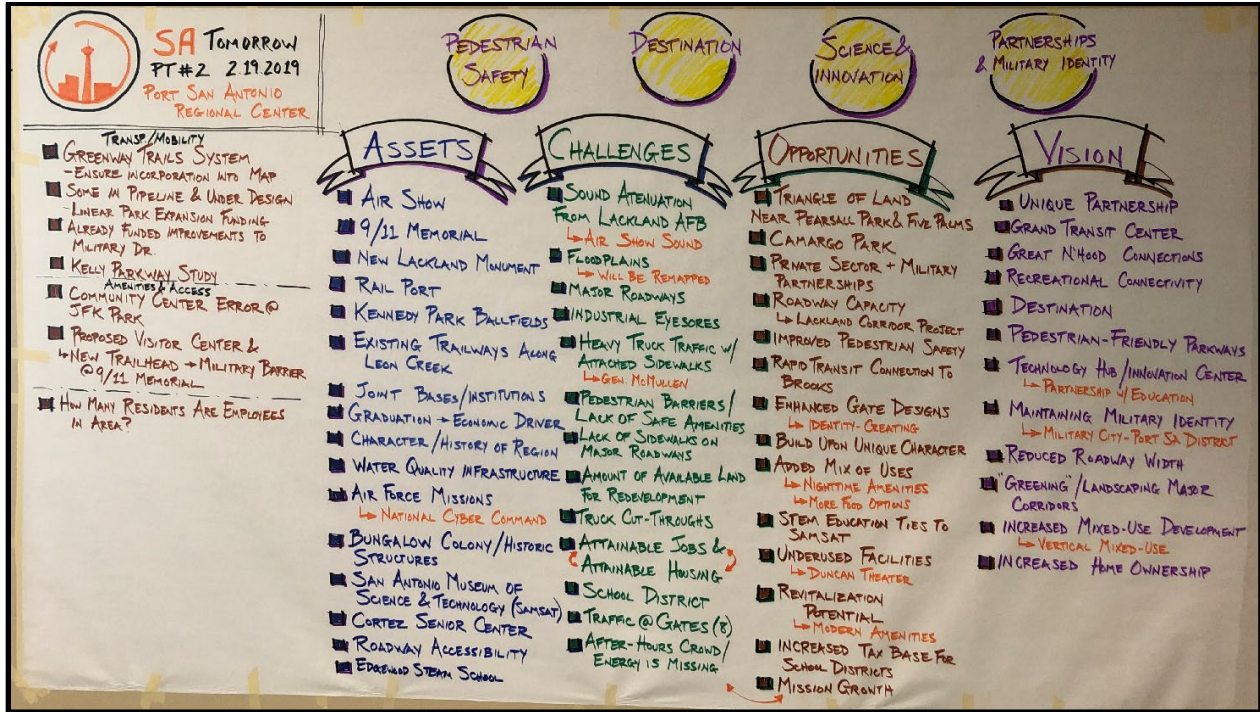 SA TOMORROW
PT #2 2.19.2019
PORT SAN ANTONIO
REGIONAL CENTER
PEDESTRIAN
SAFETY
DESTINATION
SCIENCE &
INNOVATION
PARTNERSHIPS
& MILITARY IDENTITY
TRANSP./MOBILITY
GREENWAY TRAILS SYSTEM
- ENSURE INCORPORATION INTO MAP
SOME IN PIPELINE & UNDER DESIGN
- LINEAR PARK EXPANSION FUNDING
ALREADY FUNDED IMPROVEMENTS TO
MILITARY DR.
KELLY PARKWAY STUDY
AMENITIES & ACCESS
COMMUNITY CENTER ERROR @
JFK PARK
PROPOSED VISITOR CENTER &
↳ NEW TRAILHEAD → MILITARY BARRIER
@ 9/11 MEMORIAL
HOW MANY RESIDENTS ARE EMPLOYEES
IN AREA?
ASSETS
AIR SHOW
9/11 MEMORIAL
NEW LACKLAND MONUMENT
RAIL PORT
KENNEDY PARK BALLFIELDS
EXISTING TRAILWAYS ALONG
LEON CREEK
JOINT BASES/INSTITUTIONS
GRADUATION → ECONOMIC DRIVER
CHARACTER/HISTORY OF REGION
WATER QUALITY INFRASTRUCTURE
AIR FORCE MISSIONS
↳ NATIONAL CYBER COMMAND
BUNGALOW COLONY/HISTORIC
STRUCTURES
SAN ANTONIO MUSEUM OF
SCIENCE & TECHNOLOGY (SAMSAT)
CORTEZ SENIOR CENTER
ROADWAY ACCESSIBILITY
EDGEWOOD STEAM SCHOOL
CHALLENGES
SOUND ATENUATION
FROM LACKLAND AFB
↳ AIR SHOW SOUND
FLOODPLAINS
↳ WILL BE REMAPPED
MAJOR ROADWAYS
INDUSTRIAL EYESORES
HEAVY TRUCK TRAFFIC W/
ATTACHED SIDEWALKS
↳ GEN. MCMULLEN
PEDESTRIAN BARRIERS/
LACK OF SAFE AMENITIES
LACK OF SIDEWALKS ON
MAJOR ROADWAYS
AMOUNT OF AVAILABLE LAND
FOR REDEVELOPMENT
TRUCK CUT-THROUGHS
ATTAINABLE JOBS &
ATTAINABLE HOUSING
SCHOOL DISTRICT
TRAFFIC @ GATES (8)
AFTER-HOURS CROWD/
ENERGY IS MISSING
OPPORTUNITIES
TRIANGLE OF LAND
NEAR PEARSALL PARK & FIVE PALMS
CAMARGO PARK
PRIVATE SECTOR + MILITARY
PARTNERSHIPS
ROADWAY CAPACITY
↳ LACKLAND CORRIDOR PROJECT
IMPROVED PEDESTRIAN SAFETY
RAPID TRANSIT CONNECTION TO
BROOKS
ENHANCED GATE DESIGNS
↳ IDENTITY-CREATING
BUILD UPON UNIQUE CHARACTER
ADDED MIX OF USES
↳ NIGHTTIME AMENITIES
↳ MORE FOOD OPTIONS
STEM EDUCATION TIES TO
SAMSAT
UNDERUSED FACILITIES
↳ DUNCAN THEATER
REVITALIZATION
POTENTIAL
↳ MODERN AMENITIES
INCREASED TAX BASE FOR
SCHOOL DISTRICTS
MISSION GROWTH
VISION
UNIQUE PARTNERSHIP
GRAND TRANSIT CENTER
GREAT N'HOOD CONNECTIONS
RECREATIONAL CONNECTIVITY
DESTINATION
PEDESTRIAN-FRIENDLY PARKWAYS
TECHNOLOGY HUB/INNOVATION CENTER
↳ PARTNERSHIP W/ EDUCATION
MAINTAINING MILITARY IDENTITY
↳ MILITARY CITY-PORT SA DISTRICT
REDUCED ROADWAY WIDTH
"GREENING"/LANDSCAPING MAJOR
CORRIDORS
INCREASED MIXED-USE DEVELOPMENT
↳ VERTICAL MIXED-USE
INCREASED HOME OWNERSHIP